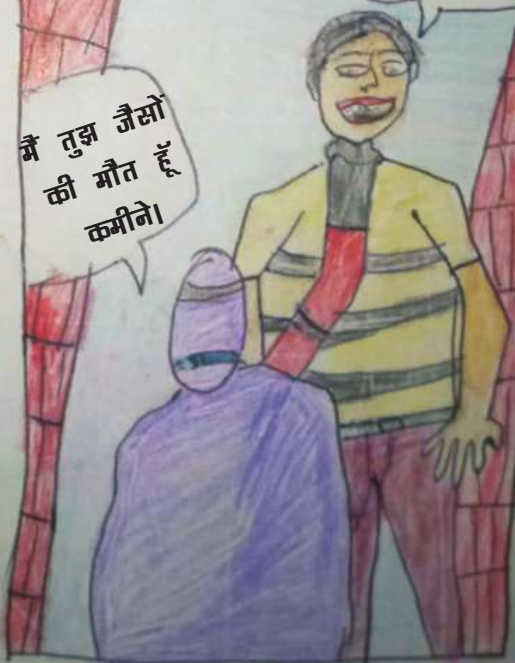 मैं तुझ जैसों
की मौत हूँ
कमीने।